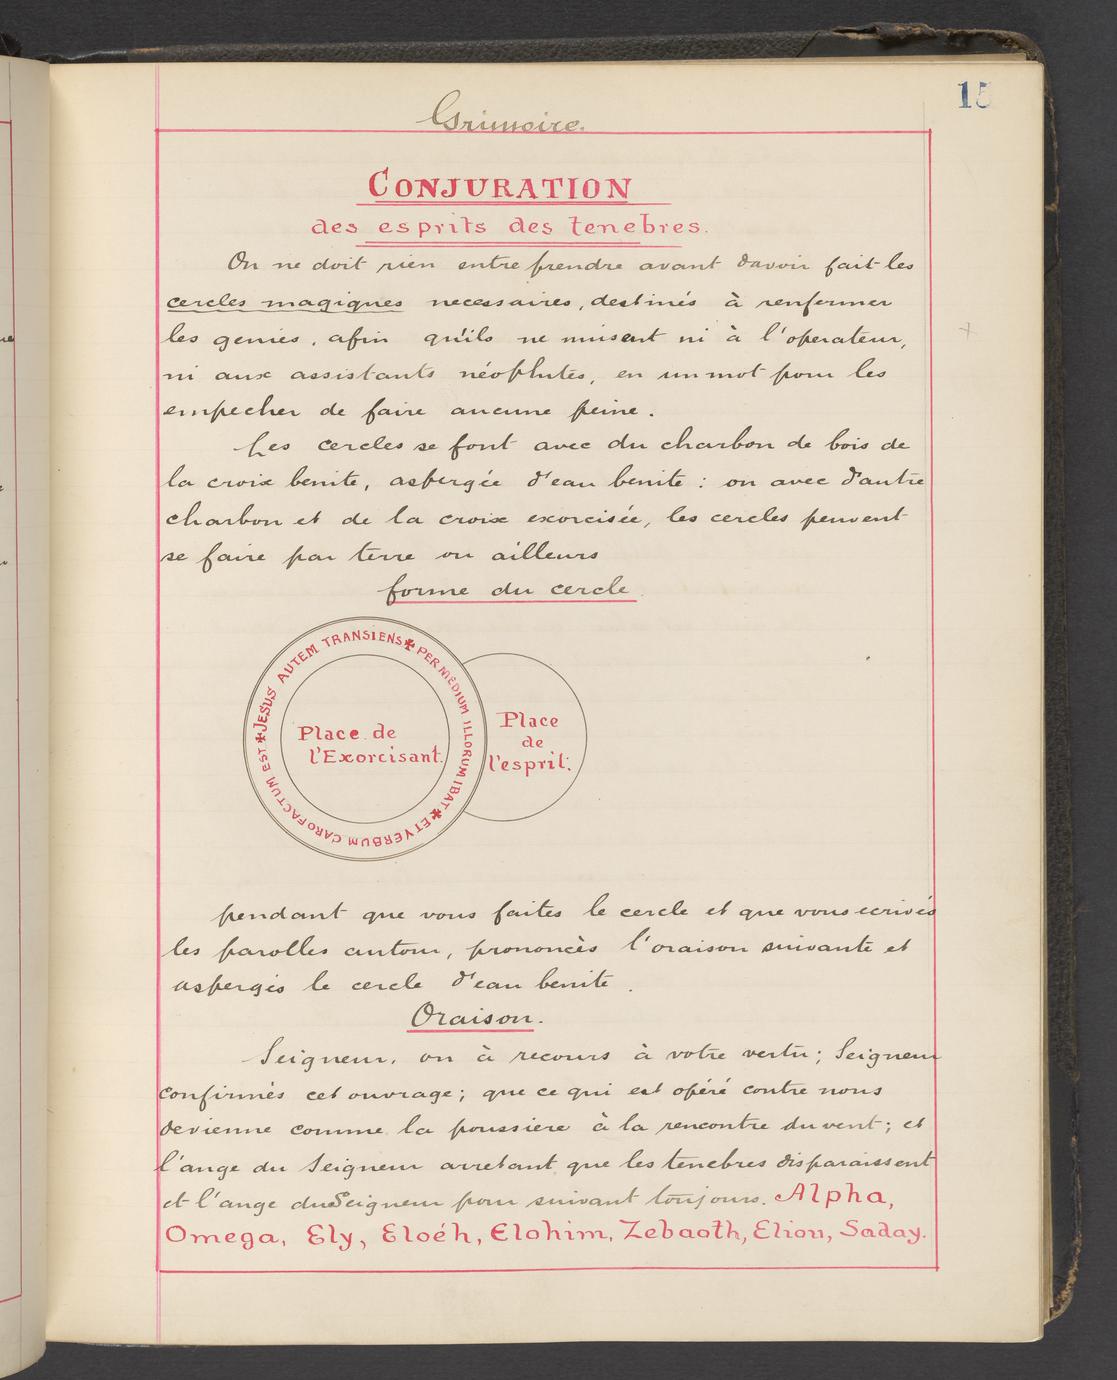 15
Grimoire.
CONJURATION
des esprits des tenebres.
On ne doit rien entreprendre avant davoir fait les
cercles magiques necessaires, destinés à renfermer
les genies, afin qu'ils ne nuisent ni à l'operateur,
ni aux assistants néophites, en un mot pour les
empecher de faire aucune peine.
Les cercles se font avec du charbon de bois de
la croix benite, aspergée d'eau benite : ou avec d'autre
charbon et de la croix exorcisée, les cercles peuvent
se faire par terre ou ailleurs
forme du cercle
✠ JESUS AUTEM TRANSIENS ✠ PER MEDIUM ILLORUM IBAT ✠ ET VERBUM CARO FACTUM EST
Place de
l'Exorcisant.
Place
de
l'esprit.
pendant que vous faites le cercle et que vous ecrivés
les parolles autour, prononcès l'oraison suivante et
aspergés le cercle d'eau benite.
Oraison.
Seigneur, on à recours à votre vertu; Seigneur
confirmès cet ouvrage; que ce qui est opéré contre nous
devienne comme la poussiere à la rencontre du vent; et
l'ange du Seigneur arretant que les tenebres disparaissent
et l'ange du Seigneur pour suivant toujours. Alpha,
Omega, Ely, Eloéh, Elohim, Zebaoth, Elion, Saday.